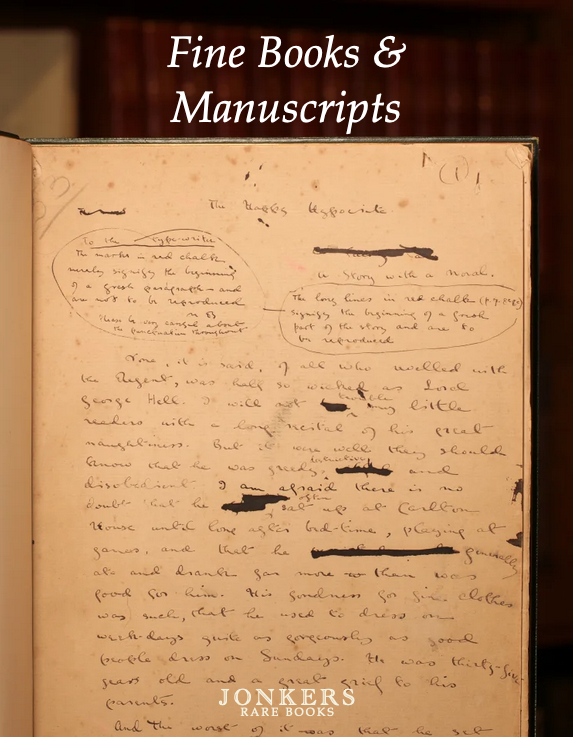 Fine Books &
Manuscripts
(1)
The Happy Hypocrite
a Story with a Moral.
To the type-writer
The marks in red chalk
merely signify the beginning
of a fresh paragraph and
are not to be reproduced
N B
Please be very careful about
the punctuation throughout
The long lines in red chalk
signify the beginning of a fresh
part of the story and are to
be reproduced
None, it is said, of all who revelled with
the Regent, was half so wicked as Lord
George Hell. I will not trouble my little
readers with a long recital of his great
naughtiness. But it were well they should
know that he was greedy, destructive and
disobedient. I am afraid there is no
doubt that he often sat up at Carlton
House until long after bed-time, playing at
games, and that he generally
ate and drank far more than was
good for him. His fondness for fine clothes
was such, that he used to dress on
week-days quite as gorgeously as good
people dress on Sundays. He was thirty-five
years old and a great grief to his
parents.
And the worst of it was that he set
JONKERS
RARE BOOKS